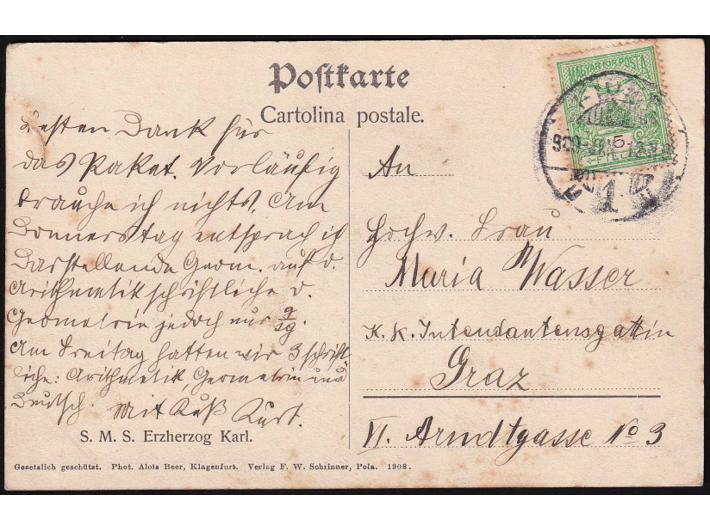 Postkarte
Cartolina postale.
MAGYAR KIR. POSTA
FIUME
Besten Dank für
das Paket. Vorläufig
brauche ich nichts. Am
Donnerstag entsprach ich
Darstellende Geom. auf d.
Arithmetik schriftliche d.
Geometrie jedoch nur
Am Freitag hatten wir 3 schrift-
liche: Arithmetik, Geometrie und
Deutsch. Mit Kuß Kurt.
S. M. S. Erzherzog Karl.
Gesetzlich geschützt. Phot. Alois Beer, Klagenfurt. Verlag F. W. Schrinner, Pola. 1908.
An
Hochw. Frau
Maria Wasser
K. K. Intendantensgattin
Graz
VI. Arndtgasse No 3